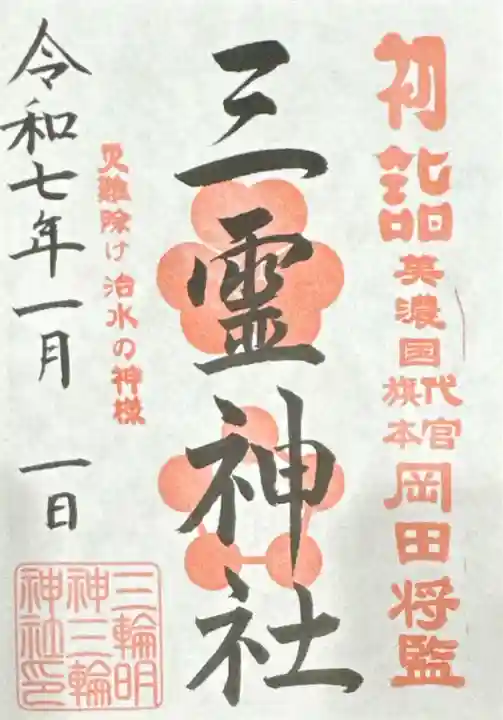 初詣
美濃国
代官
旗本
岡田将監
三霊神社
災難除け 治水の神様
令和七年一月 一日
三輪明
神三輪
神社印